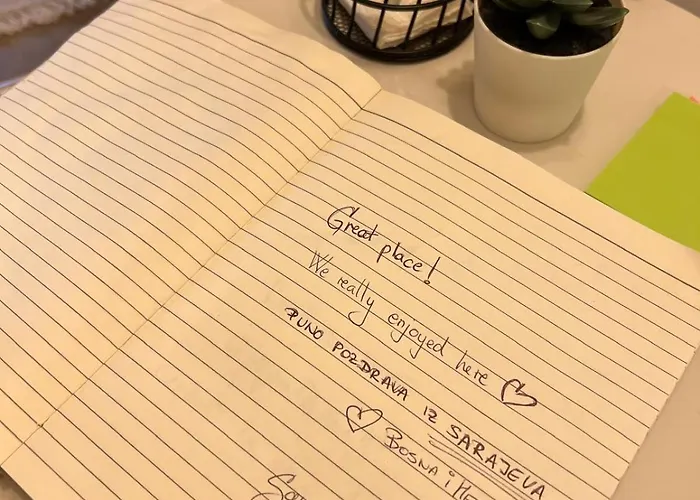 Great place!
We really enjoyed here ♡
PUNO POZDRAVA IZ SARAJEVA
♡ BOSNA i